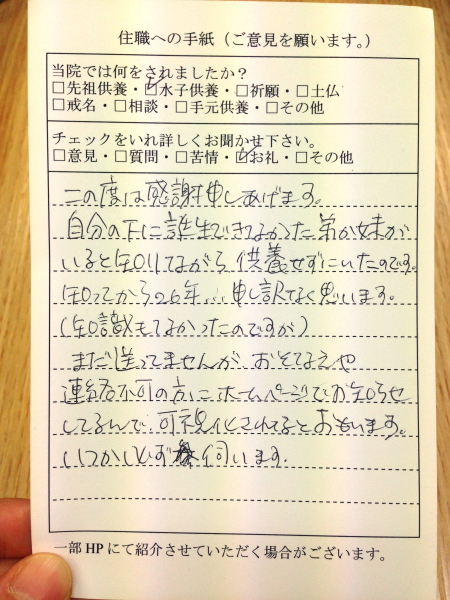 住職への手紙（ご意見を願います。）
当院では何をされましたか？
□先祖供養・☑水子供養・□祈願・□土仏
□戒名・□相談・□手元供養・□その他
チェックをいれ詳しくお聞かせ下さい。
□意見・□質問・□苦情・☑お礼・□その他
この度は感謝申しあげます。
自分の下に誕生できてなかった弟か妹が
いると知りしてながら供養せずにいたのです。
知ってからの6年… 申し訳なく思います。
(知識もてなかったのですが)
まだ送ってませんが、おそなえや
連絡不可の方に ホームページでお知らせ
してるんで、可視化されてるとおもいます。
いつか必ず 伺います.
一部HPにて紹介させていただく場合がございます。